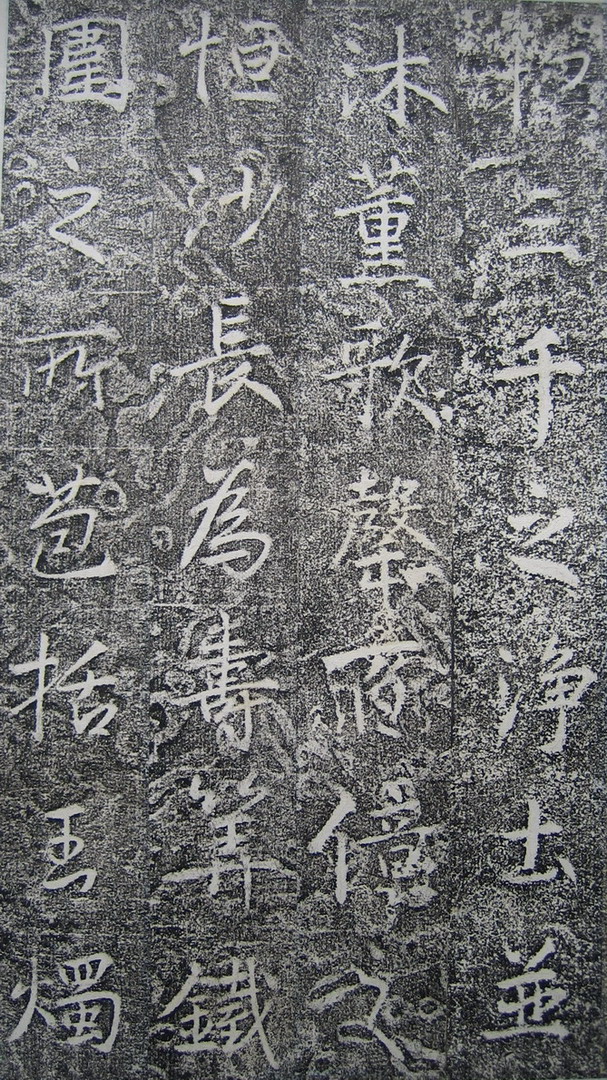 三千之淨土並
沐薰歌罄百億之
恒沙長為壽筭鐵
圍之所苞括玉燭